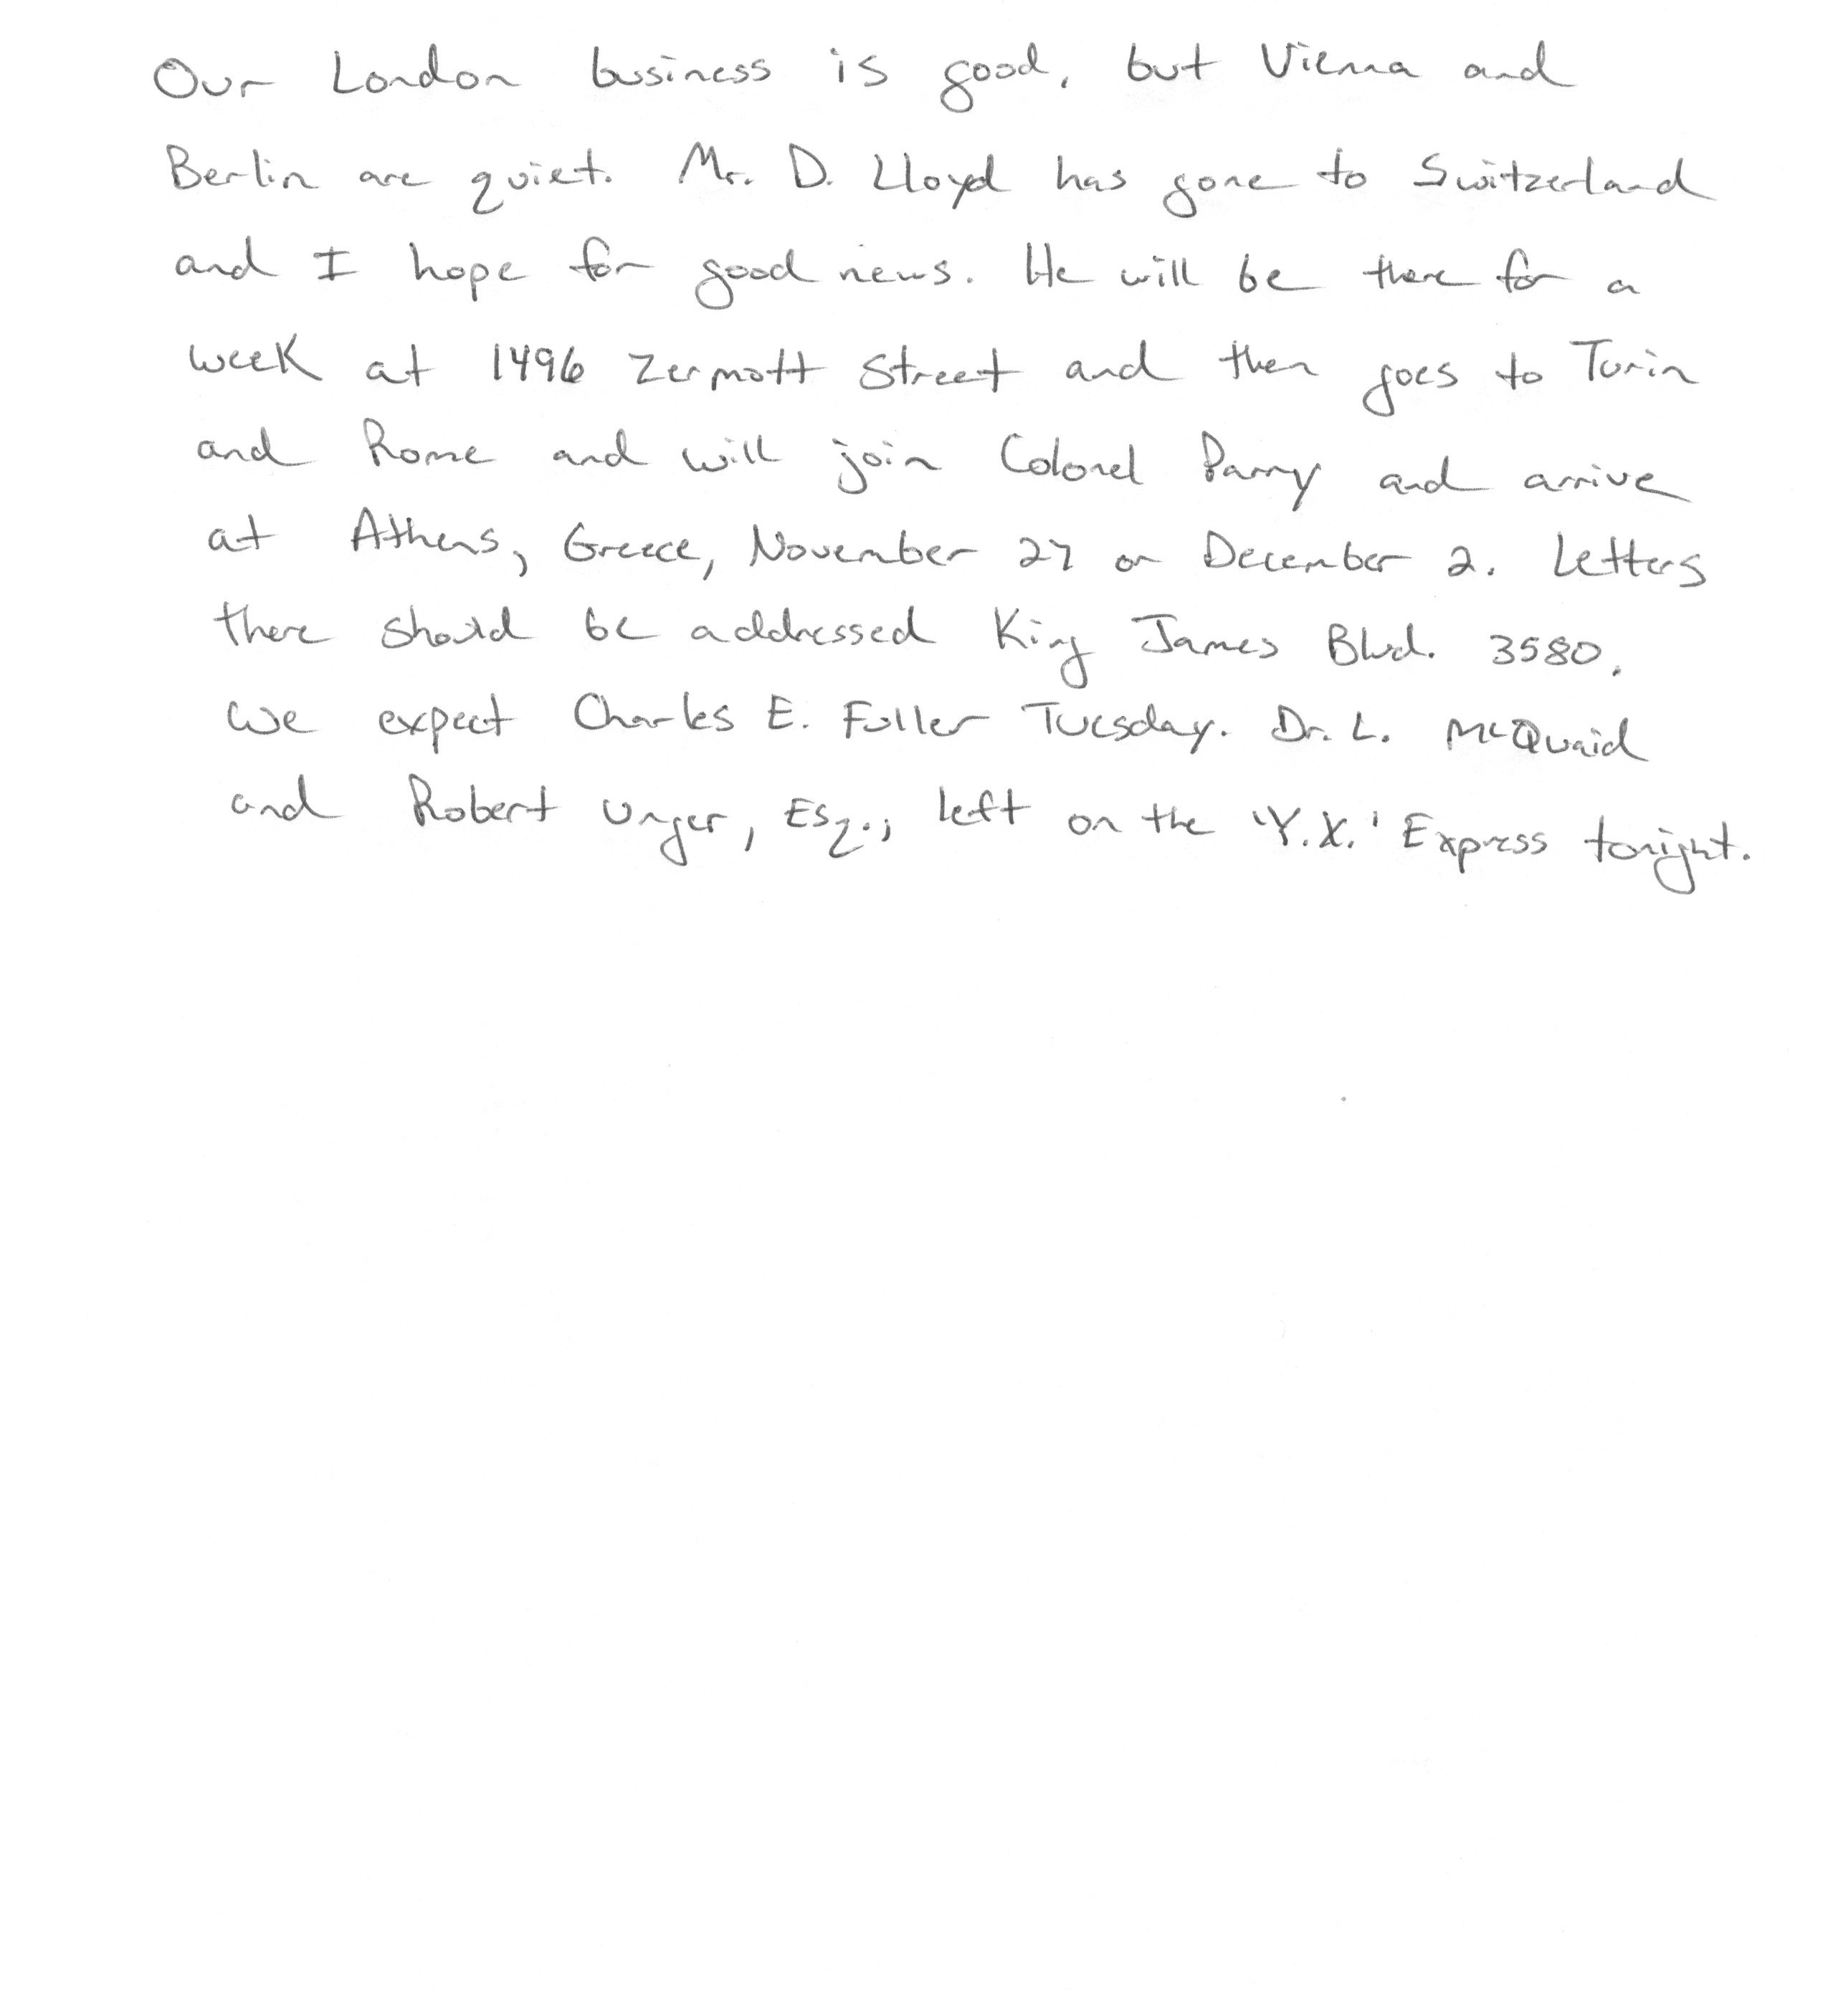 Our London business is good, but Vienna and
Berlin are quiet. Mr. D. Lloyd has gone to Switzerland
and I hope for good news. He will be there for a
week at 1496 Zermott Street and then goes to Turin
and Rome and will join Colonel Parry and arrive
at Athens, Greece, November 27 or December 2. Letters
there should be addressed King James Blvd. 3580.
We expect Charles E. Fuller Tuesday. Dr. L. McQuaid
and Robert Unger, Esq., left on the 'Y.X.' Express tonight.